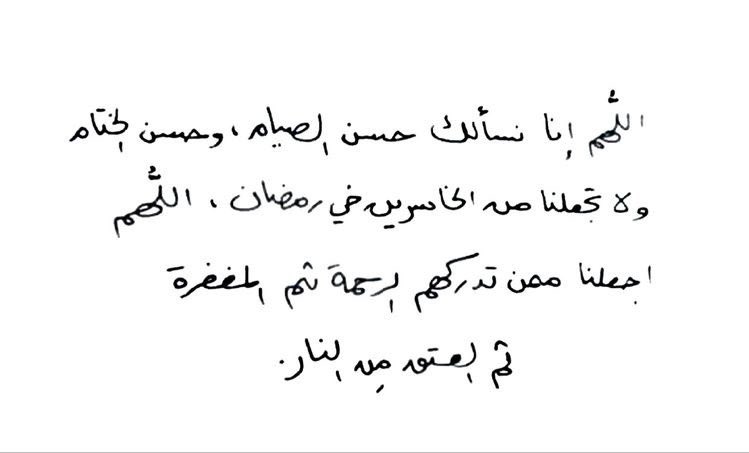 اللّهم إنا نسألك حسن الصيام، وحسن الختام
ولا تجعلنا من الخاسرين في رمضان، اللّهم
اجعلنا ممن تدركهم الرحمة ثم المغفرة
ثم العتق مِن النار.